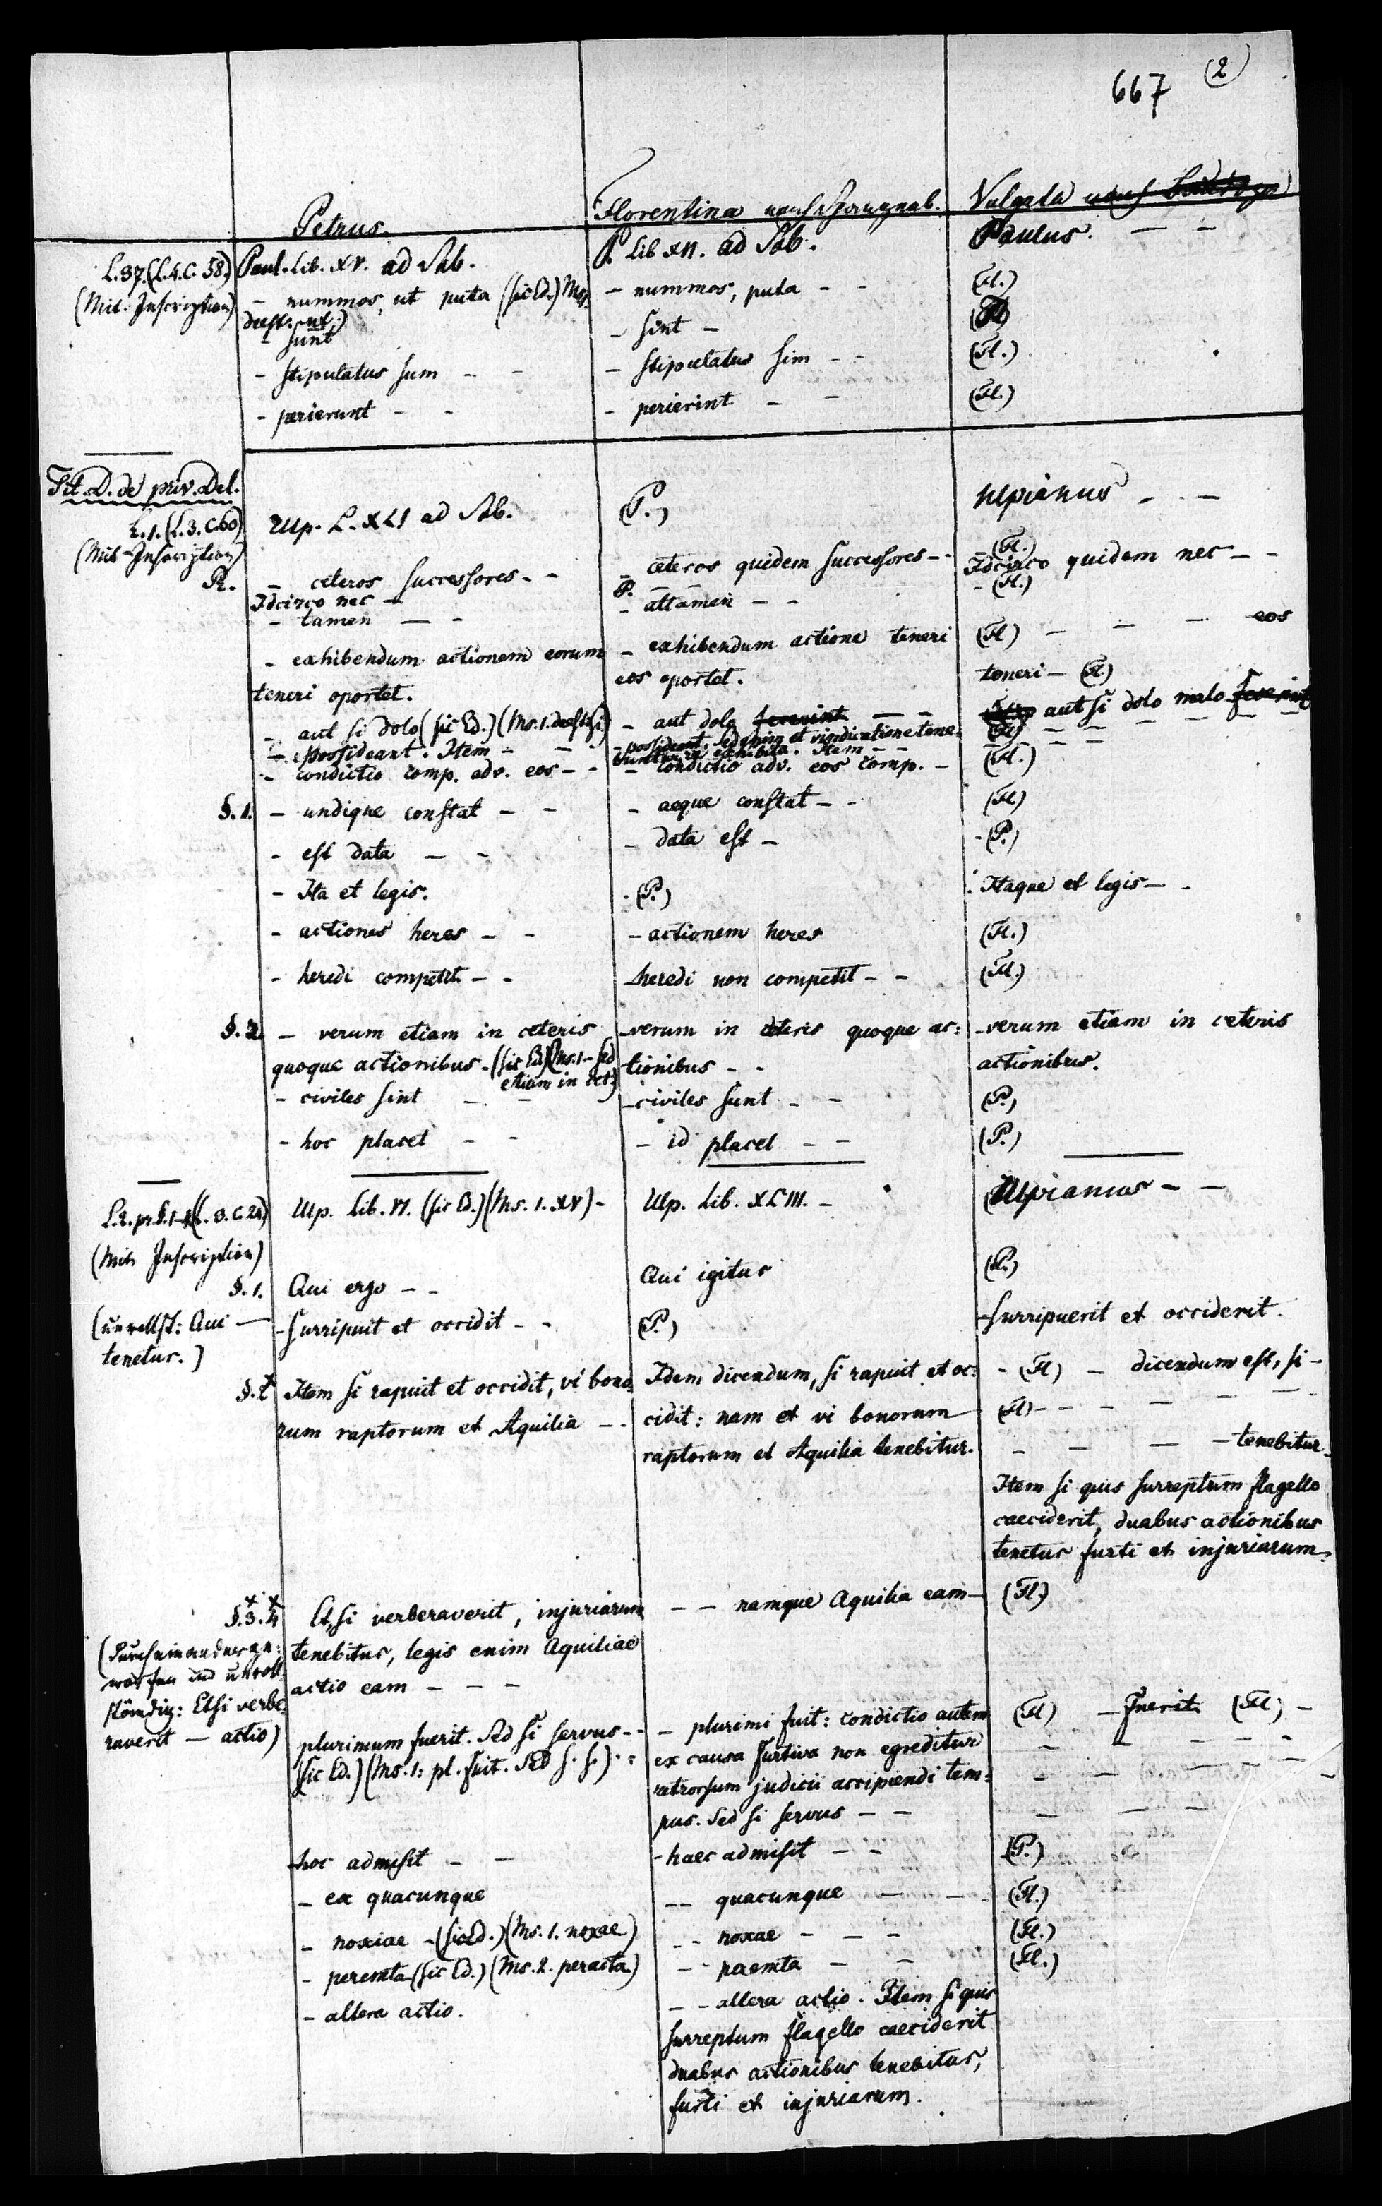 667 (2)
Petrus. Florentina nach Spangenb. Vulgata
L.37.(L.4.C.58) Paul. Lib. XV. ad Sab. P. Lib XII. ad Sab. Paulus. — —
(Mit Inscription) — nummos, ut puta (sic Ed.) — nummos, puta — — (Fl.)
deest: ut.)
— sunt — sint — (Fl.)
— stipulatus sum — — — stipulatus sim — — (Fl.)
— perierunt — — — perierint — — (Fl.)
Tit. D. de priv. Del.
L.1.(L.3.C.60) Ulp. L. XLI ad Sab. (P.) Ulpianus — —
(Mit Inscription)
Pr. — ceteros successores — — — ceteros quidem successores — — — (Fl.)
Idcirco nec — P. — — Idcirco quidem nec — —
— tamen — — — attamen — — — (Fl.)
— exhibendum actionem eorum — exhibendum actione teneri (Fl) — — — eos
teneri oportet. eos oportet. teneri — (Fl)
— aut si dolo (sic Ed.) (Ms.1. deest si) — aut dolo fecerint — — aut si dolo malo fecerint
— possideant. Item — — — possideant, sed enim et vindicatione tene= (Fl) — —
buntur re exhibita. Item — —
— condictio comp. adv. eos — — — condictio adv. eos comp. — (Fl.)
§.1. — undique constat — — — aeque constat — — (Fl)
— est data — — — data est — — (P.)
— Ita et legis. — (P.) Itaque et legis — —
— actiones heres — — — actionem heres (Fl.)
— heredi competit — — — heredi non competit — — (Fl.)
§.2. — verum etiam in ceteris — verum in ceteris quoque ac= — verum etiam in ceteris
quoque actionibus. (sic Ed.)(Ms.1 — sed tionibus — — actionibus.
etiam in cet.)
— civiles sint — — — civiles sunt — — (P.)
— hoc placet — — — id placet — — (P.)
L.2. pr. §.1-4(L.3.C.24) Ulp. Lib. VI. (sic Ed.)(Ms. 1. XV) — Ulp. Lib. XLIII. — Ulpianus — —
(Mit Inscription)
§.1. Qui ergo — — Qui igitur (P.)
(unvollst: Qui — — surripuit et occidit — — (P.) — surripuerit et occiderit.
tenetur.)
§.2 Item si rapuit et occidit, vi bono= Idem dicendum, si rapuit et oc= — (Fl) — dicendum est, si —
rum raptorum et Aquilia — — cidit: nam et vi bonorum (Fl) — — — —
raptorum et Aquilia tenebitur. — — — — tenebitur.
Item si quis surreptum flagello
caeciderit, duabus actionibus
tenetur furti et injuriarum.
§.3.4 Et, si verberaverit, injuriarum — — namque Aquilia eam — (Fl)
(Durcheinandernge= tenebitur, legis enim Aquiliae
worfen und unvoll= actio eam — — —
ständig: Etsi verbe=
raverit — actio) plurimum fuerit. Sed si servus — — — plurimi fuit: condictio autem (Fl) — fuerit (Fl) —
(sic Ed.)(Ms.1: pl. fuit. Sed s. s.) — ex causa furtiva non egreditur — — — —
retrorsum judicii accipiendi tem= — — — —
pus. Sed si servus — — — — —
— hoc admisit — — — haec admisit — — (P.)
— ex quacunque — — quacunque — — (Fl.)
— noxiae — (sic Ed.)(Ms. 1. noxae) — — noxae — — — (Fl.)
— peremta (sic Ed.)(Ms. 2. peracta) — — peremta — — (Fl.)
— altera actio. — — altera actio. Item si quis
surreptum flagello caeciderit
duabus actionibus tenebitur,
furti et injuriarum.